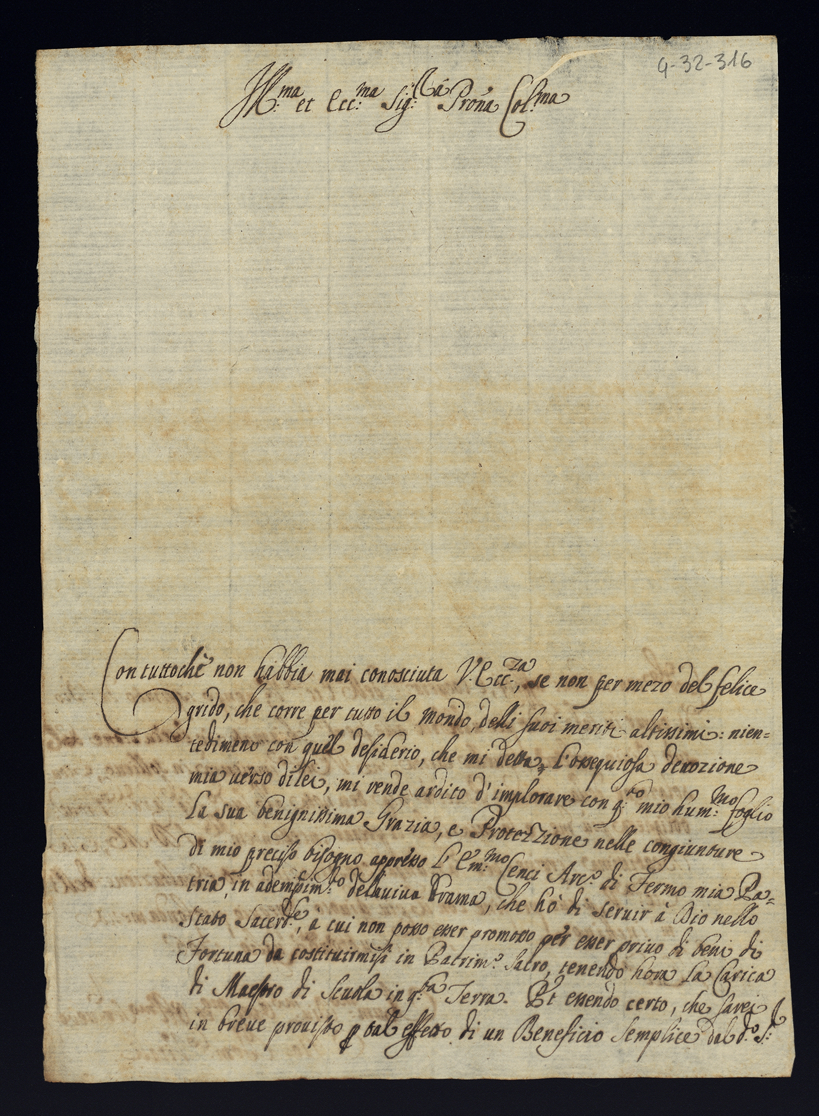 4-32-316
Ill.ma et Ecc.ma Sig.ra Pron̄a Col.ma
Con tuttochè non habbia mai conosciuta V. Ecc.za, se non per mezo del felice
grido, che corre per tutto il mondo, delli suoi meriti altissimi: nien-
tedimeno con quel desiderio, che mi detta l'ossequiosa devozione
mia verso di lei, mi rende ardito d'implorare con q.to mio hum.mo foglio
La sua benignissima Grazia, e Protezzione nelle congiunture
di mio preciso bisogno appresso l'Em.mo Cenci Arc.o di Fermo mia Pa-
tria, in adempim.to della viva brama, che hò di servir à Dio nello
stato Sacerd.e, à cui non posso esser promosso per esser privo di beni di
Fortuna da costituirmisi in Patrim.o Sacro, tenendo hora La Carica
di Maestro di Scuola in q.ta Terra. Et essendo certo, che sarei
in breve provisto p tal effetto di un Beneficio Semplice dal d.o S.r